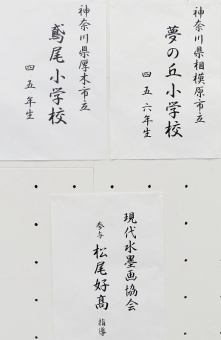 神奈川県相模原市立
夢の丘小学校
四五六年生
神奈川県厚木市立
鳶尾小学校
四五年生
現代水墨画協会
参与 松尾好高 指導